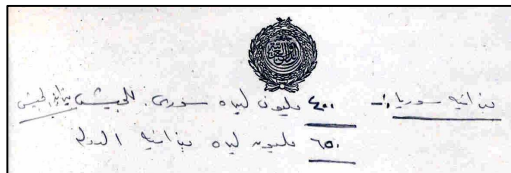 ميزانيه سوريا :- ٤٠٠ مليون ليره سورى للجيش ميزانية الجيش
٦٥٠ مليون ليره ميزانيه الدولة